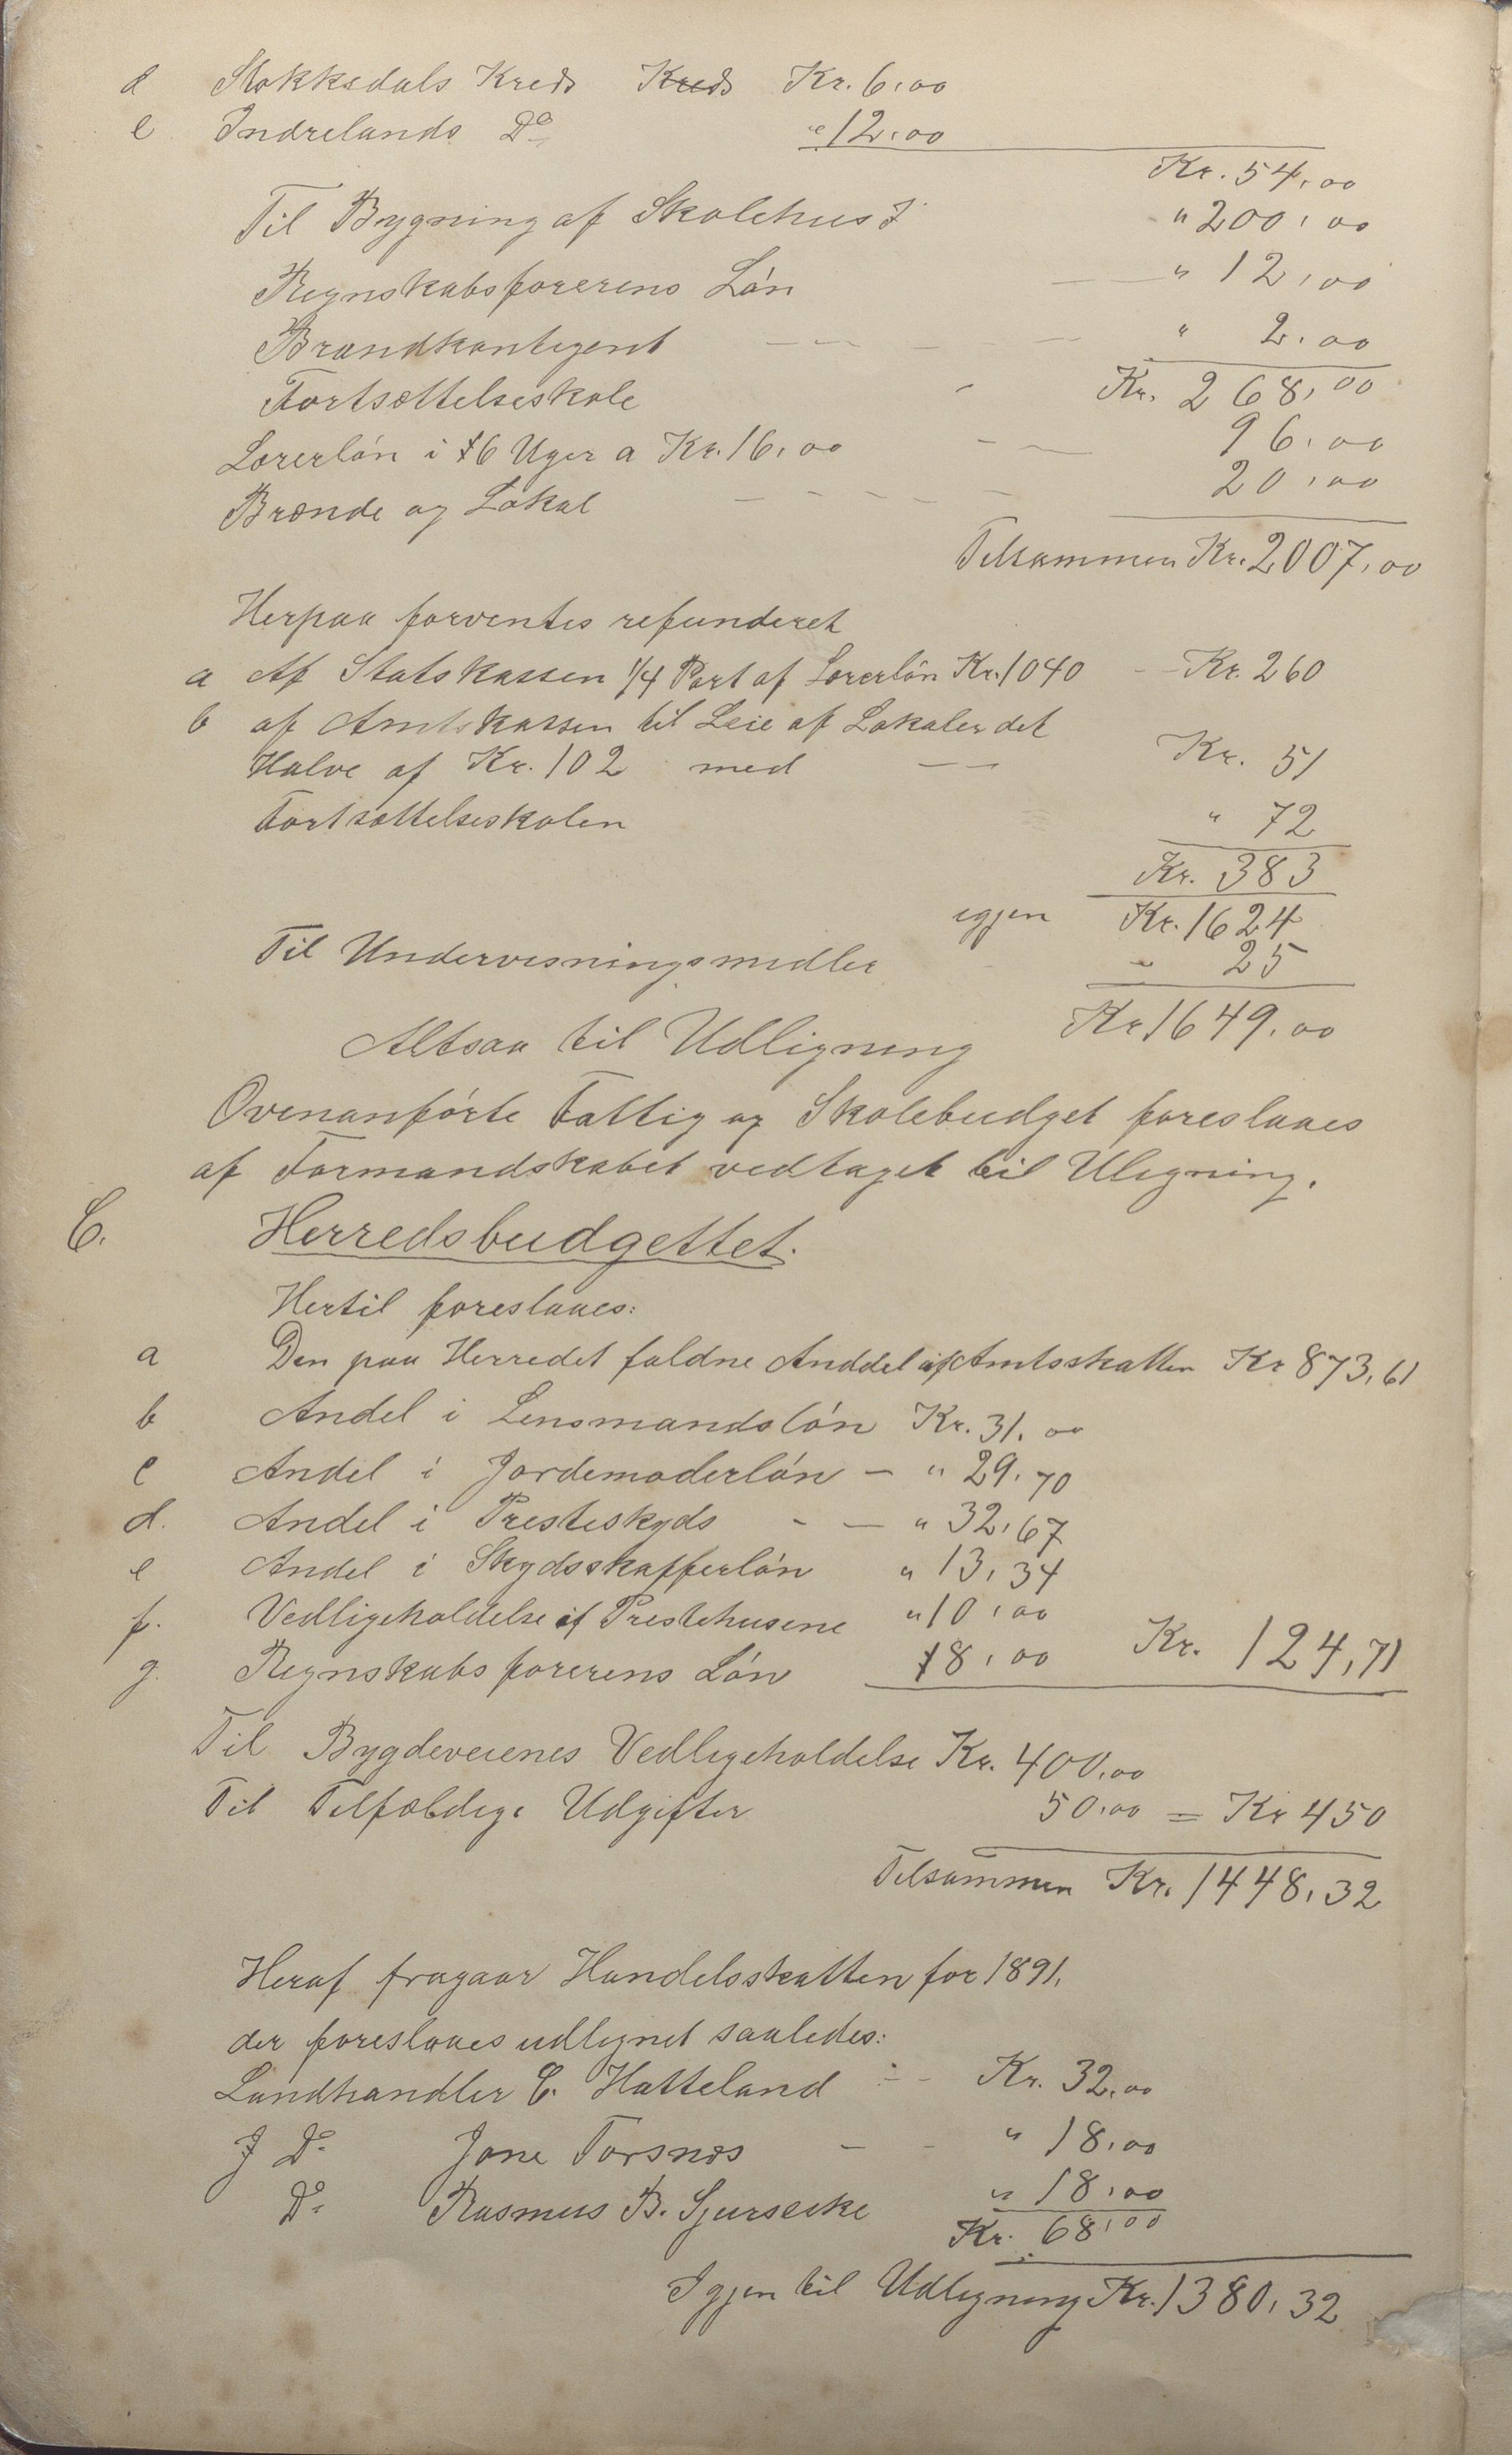 d Stokksdals Kreds Kreds Kr. 6,00
e Indrelands Do " 12,00
Kr. 54,00
Til Bygning af Skolehus I " 200,00
Regnskabsførerens Løn " 12,00
Brandkontigent " 2,00
Kr. 268,00
Fortsættelseskole
Lærerløn i 6 Uger a Kr. 16,00 96,00
Brænde og Lokal 20,00
Tilsammen Kr. 2007,00
Herpaa forventes refunderet
a Af Statskassen 1/4 Part af Lærerløn Kr. 1040 Kr. 260
b af Amtskassen til Leie af Lokaler det
Halve af Kr. 102 med Kr. 51
Fortsættelseskolen " 72
Kr. 383
igjen Kr. 1624
Til Undervisningsmidler " 25
Altsaa til Udligning Kr 1649,00
Ovenanførte Fattig og Skolebudget foreslaaes
af Formandskabet vedtaget til Uligning.
C. Herredsbudgettet.
Hertil foreslaaes:
a Den paa Herredet faldne Anddel af Amtsskatten Kr 873,61
b Andel i Lensmandsløn Kr. 31,00
c Andel i Jordemoderløn " 29,70
d. Andel i Presteskyds " 32,67
e Andel i Skydsskafferløn " 13,34
f. Vedligeholdelse af Prestehusene " 10,00
g. Regnskabsførerens Løn 8,00 Kr. 124,71
Til Bygdeveienes Vedligeholdelse Kr. 400,00
Til Tilfældige Udgifter 50,00 = Kr 450
Tilsammen Kr. 1448,32
Heraf fragaar Handelsskatten for 1891.
der foreslaaes udlignet saaledes:
Landhandler C. Hatteland Kr. 32,00
J Do Jone Torsnes " 18,00
Do Rasmus B. Sjurseike " 18,00
Kr. 68,00
Igjen til Udligning Kr. 1380,32